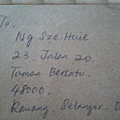 To,
Ng Sze Huie
23, Jalan 20,
Taman Bersatu,
48000,
Rawang, Selangor.